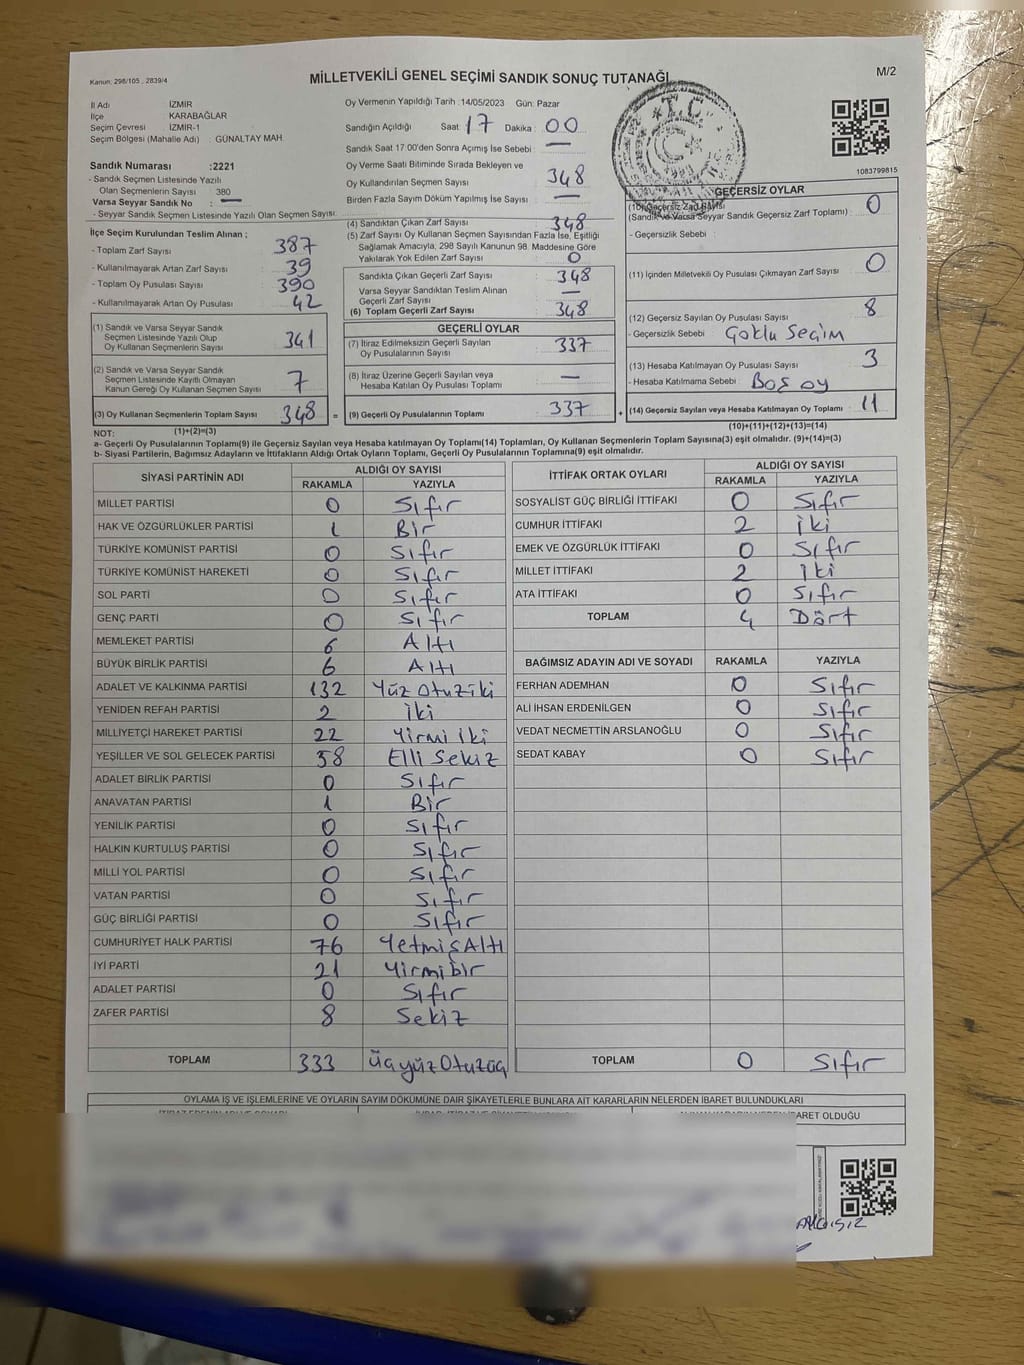 Kanun: 298/105 , 2839/4
MİLLETVEKİLİ GENEL SEÇİMİ SANDIK SONUÇ TUTANAĞI
M/2
İl Adı İZMİR
İlçe KARABAĞLAR
Seçim Çevresi İZMİR-1
Seçim Bölgesi (Mahalle Adı) : GÜNALTAY MAH.
Sandık Numarası :2221
- Sandık Seçmen Listesinde Yazılı
Olan Seçmenlerin Sayısı 380
Varsa Seyyar Sandık No : —
- Seyyar Sandık Seçmen Listesinde Yazılı Olan Seçmen Sayısı:
İlçe Seçim Kurulundan Teslim Alınan ;
- Toplam Zarf Sayısı : 387
- Kullanılmayarak Artan Zarf Sayısı : 39
- Toplam Oy Pusulası Sayısı : 390
- Kullanılmayarak Artan Oy Pusulası : 42
(1) Sandık ve Varsa Seyyar Sandık
Seçmen Listesinde Yazılı Olup
Oy Kullanan Seçmenlerin Sayısı 341
(2) Sandık ve Varsa Seyyar Sandık
Seçmen Listesinde Kayıtlı Olmayan
Kanun Gereği Oy Kullanan Seçmen Sayısı 7
(3) Oy Kullanan Seçmenlerin Toplam Sayısı 348 =
(1)+(2)=(3)
Oy Vermenin Yapıldığı Tarih :14/05/2023 Gün: Pazar
Sandığın Açıldığı Saat: 17 Dakika : 00
Sandık Saat 17:00'den Sonra Açımış İse Sebebi : —
Oy Verme Saati Bitiminde Sırada Bekleyen ve
Oy Kullandırılan Seçmen Sayısı : 348
Birden Fazla Sayım Döküm Yapılmış İse Sayısı : —
(4) Sandıktan Çıkan Zarf Sayısı : 348
(5) Zarf Sayısı Oy Kullanan Seçmen Sayısından Fazla İse, Eşitliği
Sağlamak Amacıyla, 298 Sayılı Kanunun 98. Maddesine Göre
Yakılarak Yok Edilen Zarf Sayısı : 0
Sandıkta Çıkan Geçerli Zarf Sayısı : 348
Varsa Seyyar Sandıktan Teslim Alınan
Geçerli Zarf Sayısı : —
(6) Toplam Geçerli Zarf Sayısı : 348
GEÇERLİ OYLAR
(7) İtiraz Edilmeksizin Geçerli Sayılan
Oy Pusulalarının Sayısı : 337
(8) İtiraz Üzerine Geçerli Sayılan veya
Hesaba Katılan Oy Pusulası Toplamı : —
(9) Geçerli Oy Pusulalarının Toplamı : 337 +
T.C.
1083799815
GEÇERSİZ OYLAR
(10) Geçersiz Zarf Sayısı
(Sandık ve Varsa Seyyar Sandık Geçersiz Zarf Toplamı) : 0
- Geçersizlik Sebebi :
(11) İçinden Milletvekili Oy Pusulası Çıkmayan Zarf Sayısı : 0
(12) Geçersiz Sayılan Oy Pusulası Sayısı : 8
- Geçersizlik Sebebi : Çoklu Seçim
(13) Hesaba Katılmayan Oy Pusulası Sayısı : 3
- Hesaba Katılmama Sebebi : Boş oy
(14) Geçersiz Sayılan veya Hesaba Katılmayan Oy Toplamı : 11
(10)+(11)+(12)+(13)=(14)
NOT:
a- Geçerli Oy Pusulalarının Toplamı(9) ile Geçersiz Sayılan veya Hesaba katılmayan Oy Toplamı(14) Toplamları, Oy Kullanan Seçmenlerin Toplam Sayısına(3) eşit olmalıdır. (9)+(14)=(3)
b- Siyasi Partilerin, Bağımsız Adayların ve İttifakların Aldığı Ortak Oyların Toplamı, Geçerli Oy Pusulalarının Toplamına(9) eşit olmalıdır.
SİYASİ PARTİNİN ADI ALDIĞI OY SAYISI
RAKAMLA YAZIYLA
MİLLET PARTİSİ 0 Sıfır
HAK VE ÖZGÜRLÜKLER PARTİSİ 1 Bir
TÜRKİYE KOMÜNİST PARTİSİ 0 Sıfır
TÜRKİYE KOMÜNİST HAREKETİ 0 Sıfır
SOL PARTİ 0 Sıfır
GENÇ PARTİ 0 Sıfır
MEMLEKET PARTİSİ 6 Altı
BÜYÜK BİRLİK PARTİSİ 6 Altı
ADALET VE KALKINMA PARTİSİ 132 Yüz Otuziki
YENİDEN REFAH PARTİSİ 2 İki
MİLLİYETÇİ HAREKET PARTİSİ 22 Yirmi iki
YEŞİLLER VE SOL GELECEK PARTİSİ 58 Elli Sekiz
ADALET BİRLİK PARTİSİ 0 Sıfır
ANAVATAN PARTİSİ 1 Bir
YENİLİK PARTİSİ 0 Sıfır
HALKIN KURTULUŞ PARTİSİ 0 Sıfır
MİLLİ YOL PARTİSİ 0 Sıfır
VATAN PARTİSİ 0 Sıfır
GÜÇ BİRLİĞİ PARTİSİ 0 Sıfır
CUMHURİYET HALK PARTİSİ 76 YetmişAltı
İYİ PARTİ 21 Yirmibir
ADALET PARTİSİ 0 Sıfır
ZAFER PARTİSİ 8 Sekiz
TOPLAM 333 üçyüzOtuzüç
İTTİFAK ORTAK OYLARI ALDIĞI OY SAYISI
RAKAMLA YAZIYLA
SOSYALİST GÜÇ BİRLİĞİ İTTİFAKI 0 Sıfır
CUMHUR İTTİFAKI 2 İki
EMEK VE ÖZGÜRLÜK İTTİFAKI 0 Sıfır
MİLLET İTTİFAKI 2 İki
ATA İTTİFAKI 0 Sıfır
TOPLAM 4 Dört
BAĞIMSIZ ADAYIN ADI VE SOYADI RAKAMLA YAZIYLA
FERHAN ADEMHAN 0 Sıfır
ALİ İHSAN ERDENİLGEN 0 Sıfır
VEDAT NECMETTİN ARSLANOĞLU 0 Sıfır
SEDAT KABAY 0 Sıfır
TOPLAM 0 Sıfır
OYLAMA İŞ VE İŞLEMLERİNE VE OYLARIN SAYIM DÖKÜMÜNE DAİR ŞİKAYETLERLE BUNLARA AİT KARARLARIN NELERDEN İBARET BULUNDUKLARI
İBARET OLDUĞU